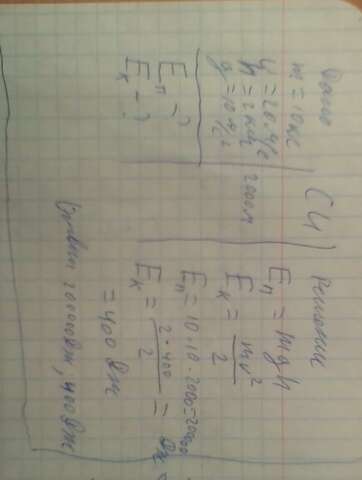 Дано
m = 10кг
υ = 20 м/с
h = 2 км
g = 10 м/с²
Eп - ?
Eк - ?
СИ
2000м
Решение
Eп = mgh
Eк = mv²/2
Eп = 10·10·2000=200000 Дж
Eк = 2·400/2 =
= 400 Дж
Ответ: 200000Дж, 400Дж